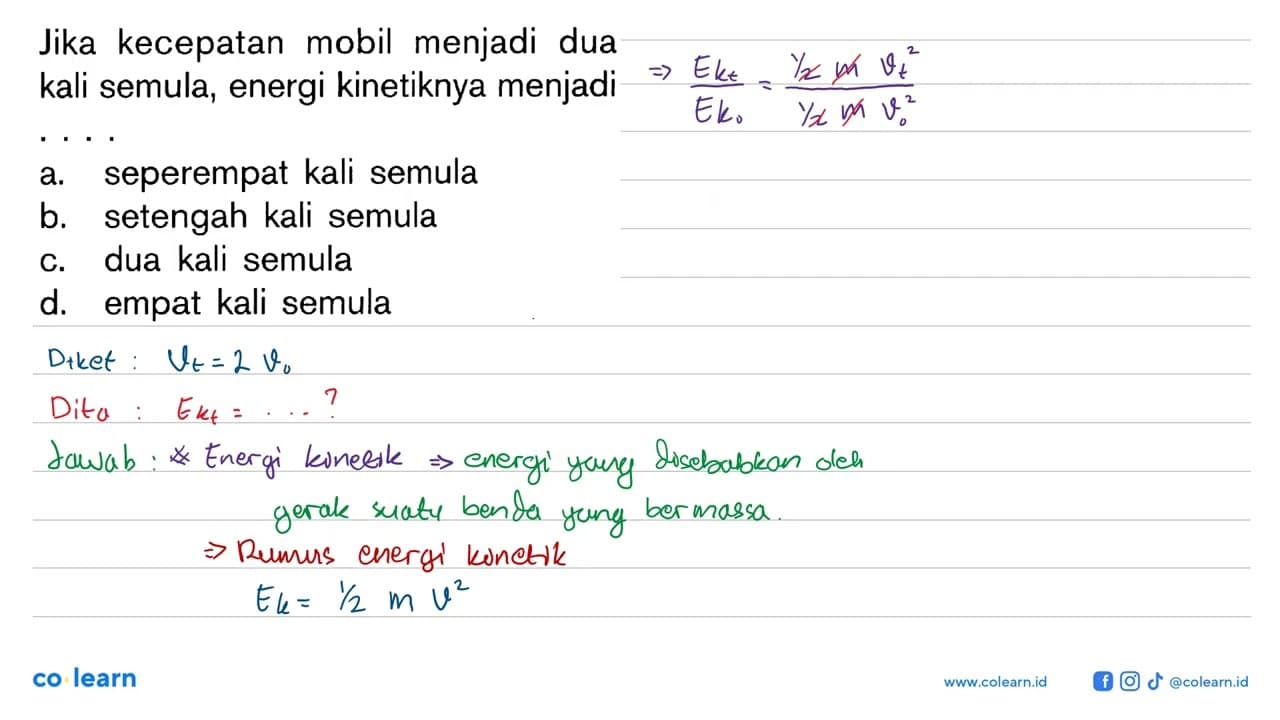 Jika kecepatan mobil menjadi dua
kali semula, energi kinetiknya menjadi
. . . .
a. seperempat kali semula
b. setengah kali semula
c. dua kali semula
d. empat kali semula
⇒ Ekₜ / Ek₀ = ½ m vₜ² / ½ m v₀²
Diket : vₜ = 2 v₀
Dita : Ekₜ = . . . ?
Jawab : * Energi kinetik ⇒ energi yang disebabkan oleh
gerak suatu benda yang bermassa.
⇒ Rumus energi kinetik
Ek = ½ m v²
co learn
www.colearn.id
@colearn.id